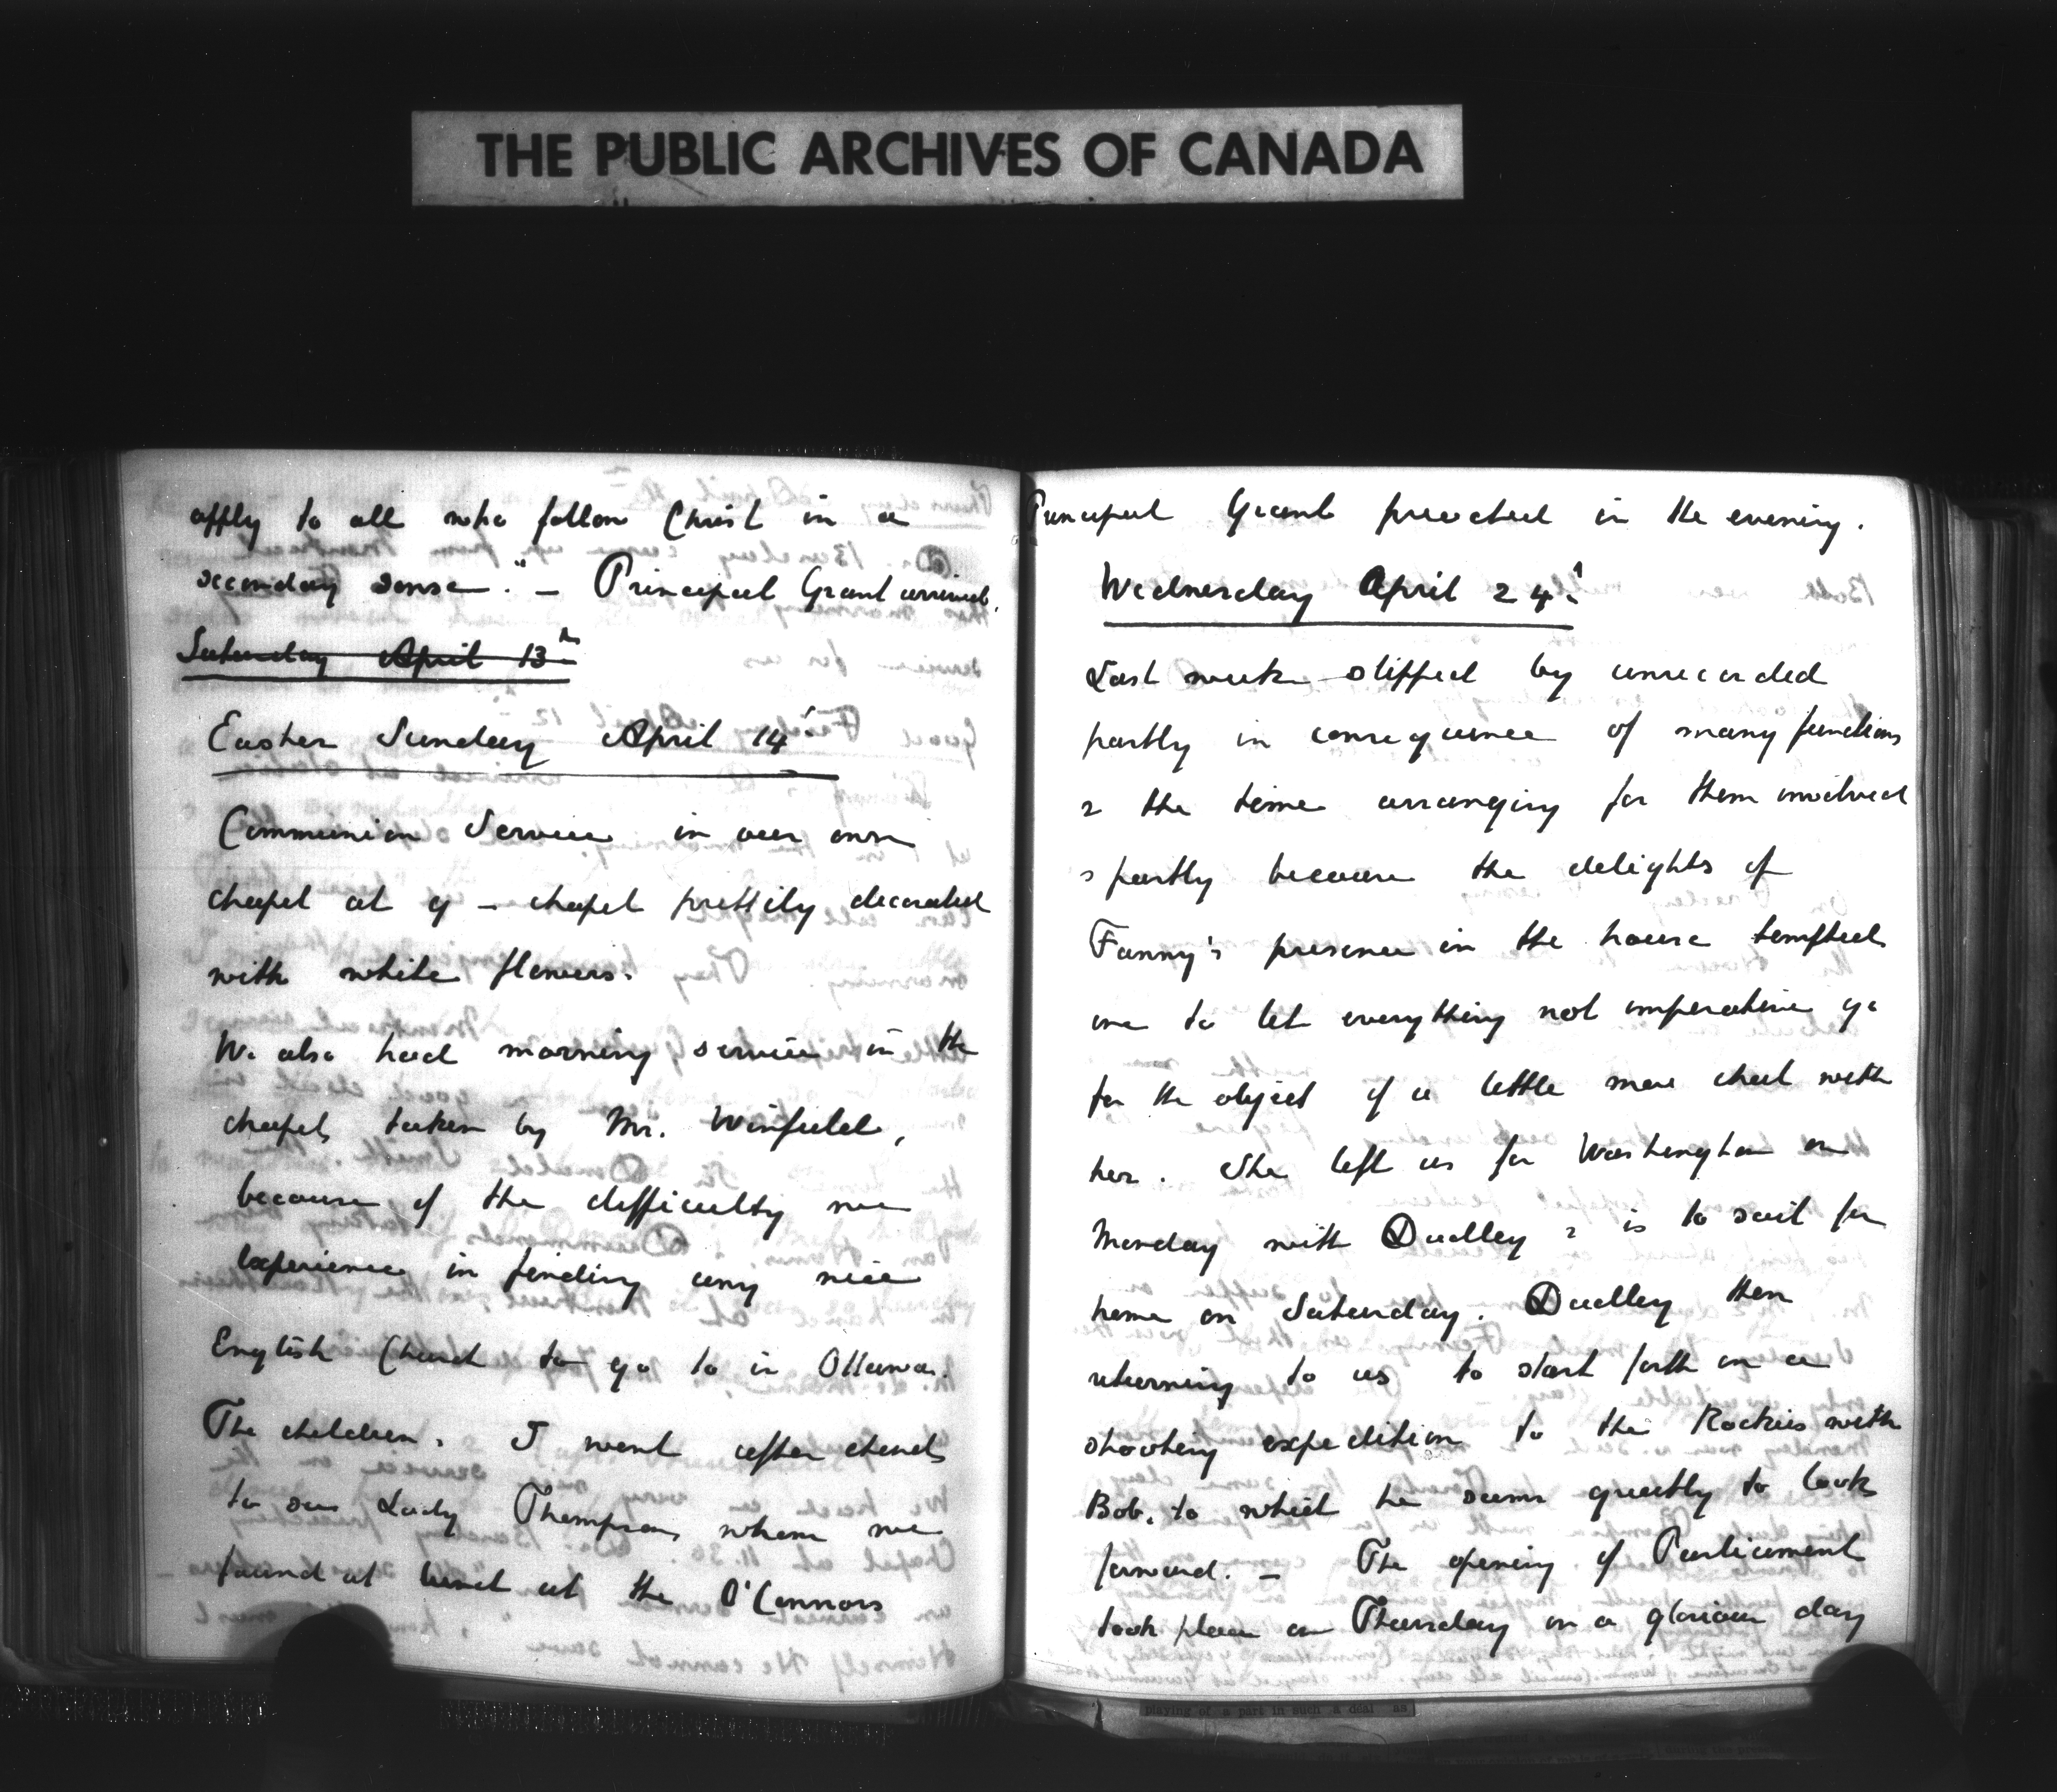 THE PUBLIC ARCHIVES OF CANADA
apply to all who follow Christ in a
secondary sense." – Principal Grant arrived.
Saturday April 13th
Easter Sunday April 14th
Communion Service in our own
chapel at 9 – chapel prettily decorated
with white flowers.
We also had morning service in the
chapel, taken by Mr. Winfield,
because of the difficulty we
experience in finding any nice
English Church to go to in Ottawa.
The children & I went after church
to see Lady Thompson whom we
found at lunch at the O'Connors
Principal Grant preached in the evening.
Wednesday April 24th
Last week slipped by unrecorded
partly in consequence of many functions
& the time arranging for them involved
& partly because the delights of
Fanny's presence in the house tempted
one to let everything not imperative go
for the object of a little more chat with
her. She left us for Washington on
Monday with Dudley & is to sail for
home on Saturday. Dudley then
returning to us to start forth on a
shooting expedition to the Rockies with
Bob, to which he seems greatly to look
forward. – The opening of Parliament
took place on Thursday on a glorious day
playing of a part in such a deal as